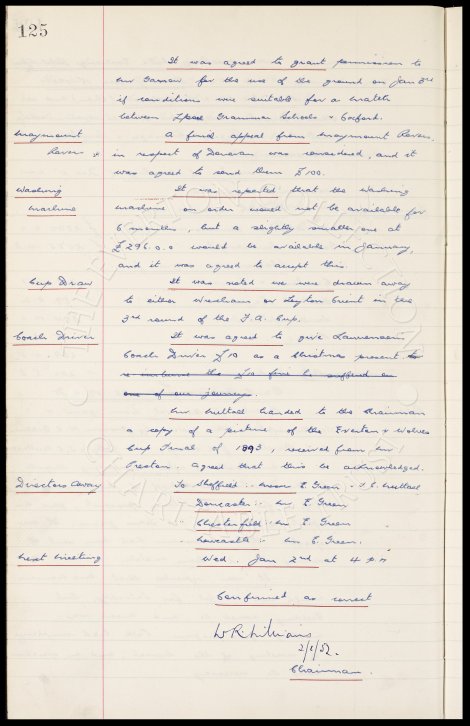 125
It was agreed to grant permission to
Mr Farrow for the use of the ground on Jan 3rd
if conditions were suitable for a match
between Lpool Grammar Schools v Oxford.
Maymount
Rovers
A fund appeal from Maymount Rovers,
in respect of Donovan was considered, and it
was agreed to send them £100.
Washing
Machine
It was reported that the washing
machine on order would not be available for
6 months, but a slightly smaller one at
£296.0.0 would be available in January,
and it was agreed to accept this.
Cup Draw
It was noted we were drawn away
to either Wrexham or Leyton Orient in the
3rd round of the F.A. Cup.
Coach Driver
It was agreed to give Lawrenson
Coach Driver £10 as a Christmas present to
reimburse the £10 fine he suffered on
one of our journeys.
Mr Nuttall handed to the Chairman
a copy of a picture of the Everton v Wolves
Cup Final of 1893, received from Mr
Preston. Agreed that this be acknowledged.
Directors Away
To Sheffield :- Messrs E. Green - J. C. Nuttall
Doncaster :- Mr E. Green
Chesterfield :- Mr E. Green
Newcastle :- Mr C. Green.
Next Meeting
Wed. Jan 2nd at 4 p.m
Confirmed as correct
W R Williams
2/1/52.
Chairman.
THE EVERTON COLLECTION
CHARITABLE TRUST